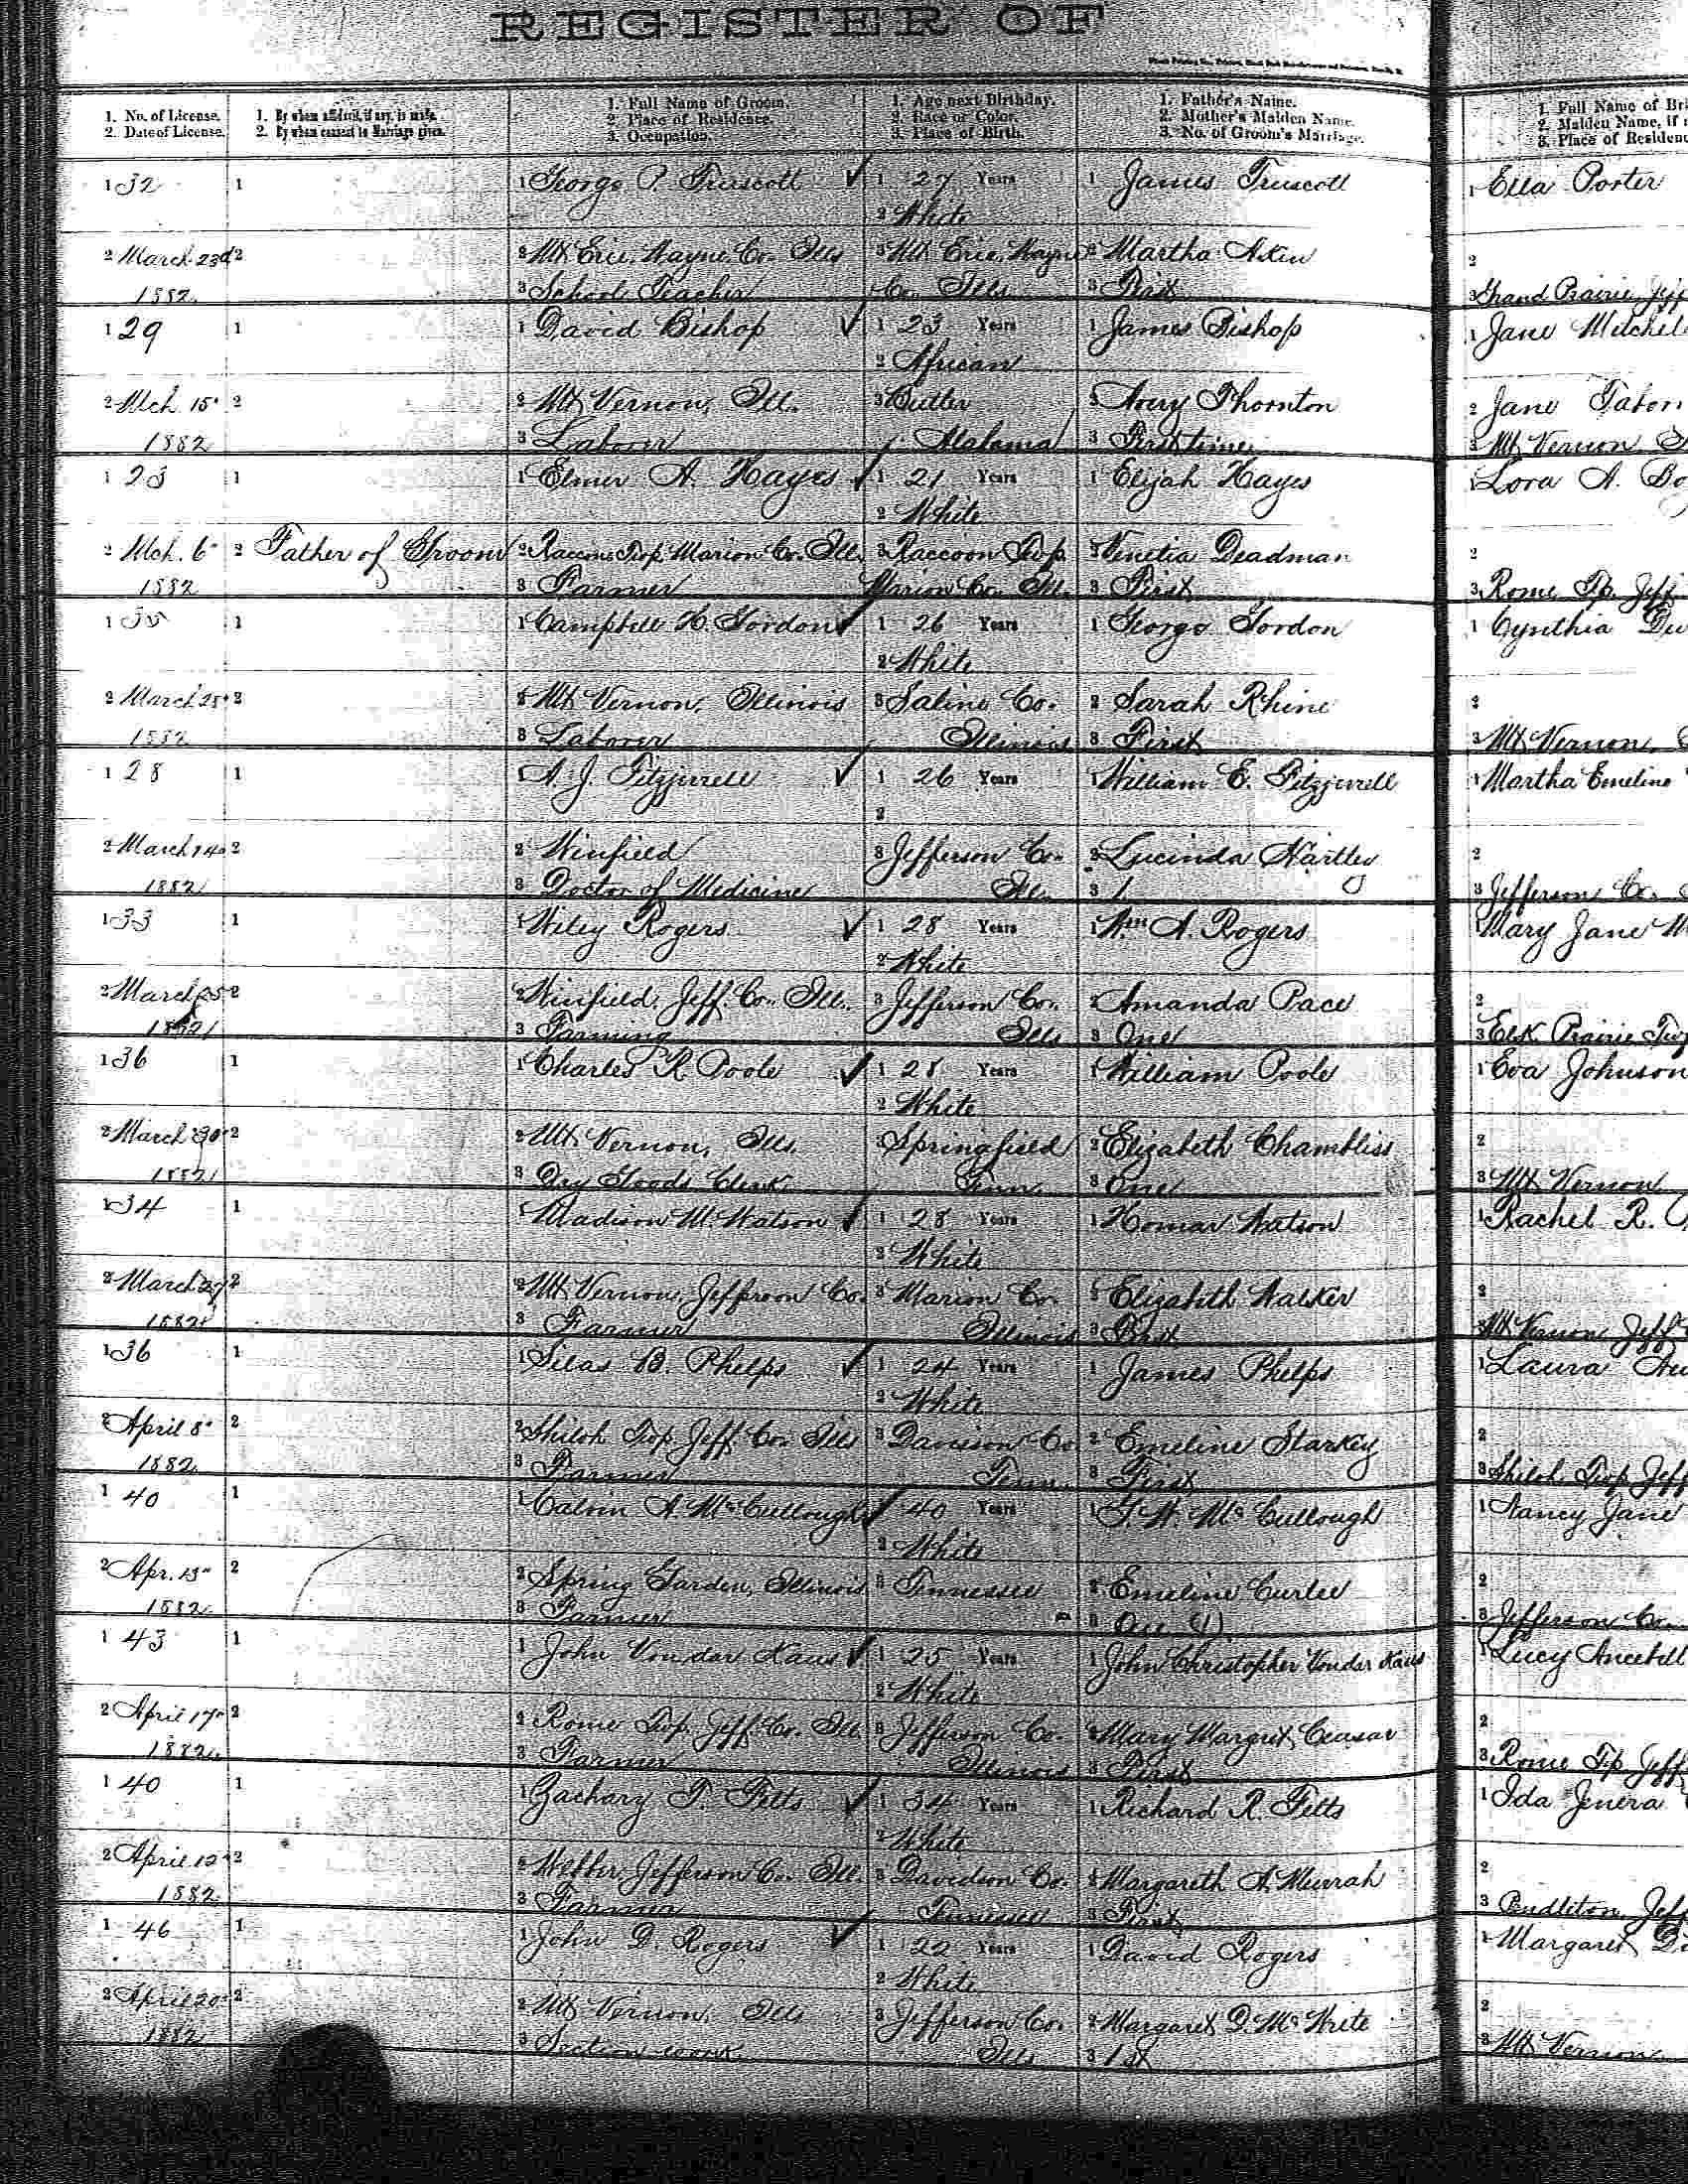 REGISTER OF
1. No. of License. 1. By whom affidavit, if any, is made. 1. Full Name of Groom. 1. Age next Birthday. 1. Father's Name. 1. Full Name of Bri
2. Date of License. 2. By whom consent to Marriage given. 2. Place of Residence. 2. Race or Color. 2. Mother's Maiden Name. 2. Maiden Name, if
3. Occupation. 3. Place of Birth. 3. No. of Groom's Marriage. 3. Place of Residenc
1 32 1 1 George P. Truscott ✓ 1 27 Years 1 James Truscott 1 Ella Porter
2 White
2 March 23d 2 2 Mt Erie, Wayne Co. Ills 3 Mt Erie, Wayne 2 Martha Akin 2
1882 3 School Teacher Co. Ills 3 First 3 Grand Prairie, Jeff
1 29 1 1 David Bishop ✓ 1 23 Years 1 James Bishop 1 Jane Mitchel
2 African
2 Mch 15" 2 2 Mt Vernon, Ill. 3 Butler 2 Avery Thornton 2 Jane Tabor
1882 3 Laborer Alabama 3 First time 3 Mt Vernon
1 23 1 1 Elmer A. Hayes ✓ 1 21 Years 1 Elijah Hayes 1 Lora A. Bo
2 White
2 Mch. 6" 2 Father of Groom 2 Raccoon Twp. Marion Co. Ill. 3 Raccoon Twp. 2 Venetia Deadman 2
1882 3 Farmer Marion Co. Ill. 3 First 3 Rome Tp. Jeff
1 1 1 Campbell H. Gordon ✓ 1 26 Years 1 George Gordon 1 Cynthia Du
2 White
2 March 25" 2 2 Mt Vernon, Illinois 3 Saline Co. 2 Sarah Rhine 2
1882 3 Laborer Illinois 3 First 3 Mt Vernon,
1 28 1 1 A. J. Fitzjerrell ✓ 1 26 Years 1 William E. Fitzjerrell 1 Martha Emeline
2
2 March 14" 2 2 Winfield 3 Jefferson Co. 2 Lucinda Hartley 2
1882 3 Doctor of Medicine Ill. 3 1 3 Jefferson Co.
1 33 1 1 Wiley Rogers ✓ 1 28 Years 1 Wm A. Rogers 1 Mary Jane
2 White
2 March 25 2 2 Winfield, Jeff. Co. Ill. 3 Jefferson Co. 2 Amanda Pace 2
1882 3 Farming Ills 3 One 3 Elk Prairie Twp
1 36 1 1 Charles R. Poole ✓ 1 28 Years 1 William Poole 1 Eva Johnson
2 White
2 March 30" 2 2 Mt Vernon, Ills. 3 Springfield 2 Elizabeth Chambliss 2
1882 3 Dry Goods Clerk Tenn. 3 One 3 Mt Vernon
1 34 1 1 Madison M. Watson ✓ 1 28 Years 1 Homar Watson 1 Rachel R.
2 White
2 March 27 2 2 Mt Vernon, Jefferson Co. 3 Marion Co. 2 Elizabeth Walker 2
1882 3 Farmer Illinois 3 First 3 Mt Vernon Jeff
1 36 1 1 Silas B. Phelps ✓ 1 24 Years 1 James Phelps 1 Laura
2 White
2 April 8" 2 2 Shiloh Twp. Jeff. Co. Ills 3 Davison Co 2 Emeline Starkey 2
1882 3 Farmer Tenn. 3 First 3 Shiloh Twp Jeff
1 40 1 1 Calvin A. McCullough ✓ 1 40 Years 1 G. W. McCullough 1 Nancy Jane
2 White
2 Apr. 13" 2 2 Spring Garden, Illinois 3 Tennessee 2 Emeline Curlee 2
1882 3 Farmer 3 One (1) 3 Jefferson Co.
1 43 1 1 John Von dar Haus ✓ 1 25 Years 1 John Christopher Vondar Haus 1 Lucy
2 White
2 April 17" 2 2 Rome Twp. Jeff. Co. Ill 3 Jefferson Co. 2 Mary Margret Ceasar 2
1882 3 Farmer Illinois 3 First 3 Rome Tp. Jeff
1 40 1 1 Zachary T. Fitts ✓ 1 34 Years 1 Richard R. Fitts 1 Ida Jenera
2 White
2 April 12" 2 2 Webber, Jefferson Co. Ill. 3 Davidson Co. 2 Margareth A. Murrah 2
1882 3 Farmer Tennessee 3 First 3 Pendleton, Jeff
1 46 1 1 John D. Rogers ✓ 1 22 Years 1 David Rogers 1 Margaret
2 White
2 April 20" 2 2 Mt Vernon, Ills 3 Jefferson Co. 2 Margaret D. McWrite 2
1882 3 Section work Ills 3 1st 3 Mt Vernon